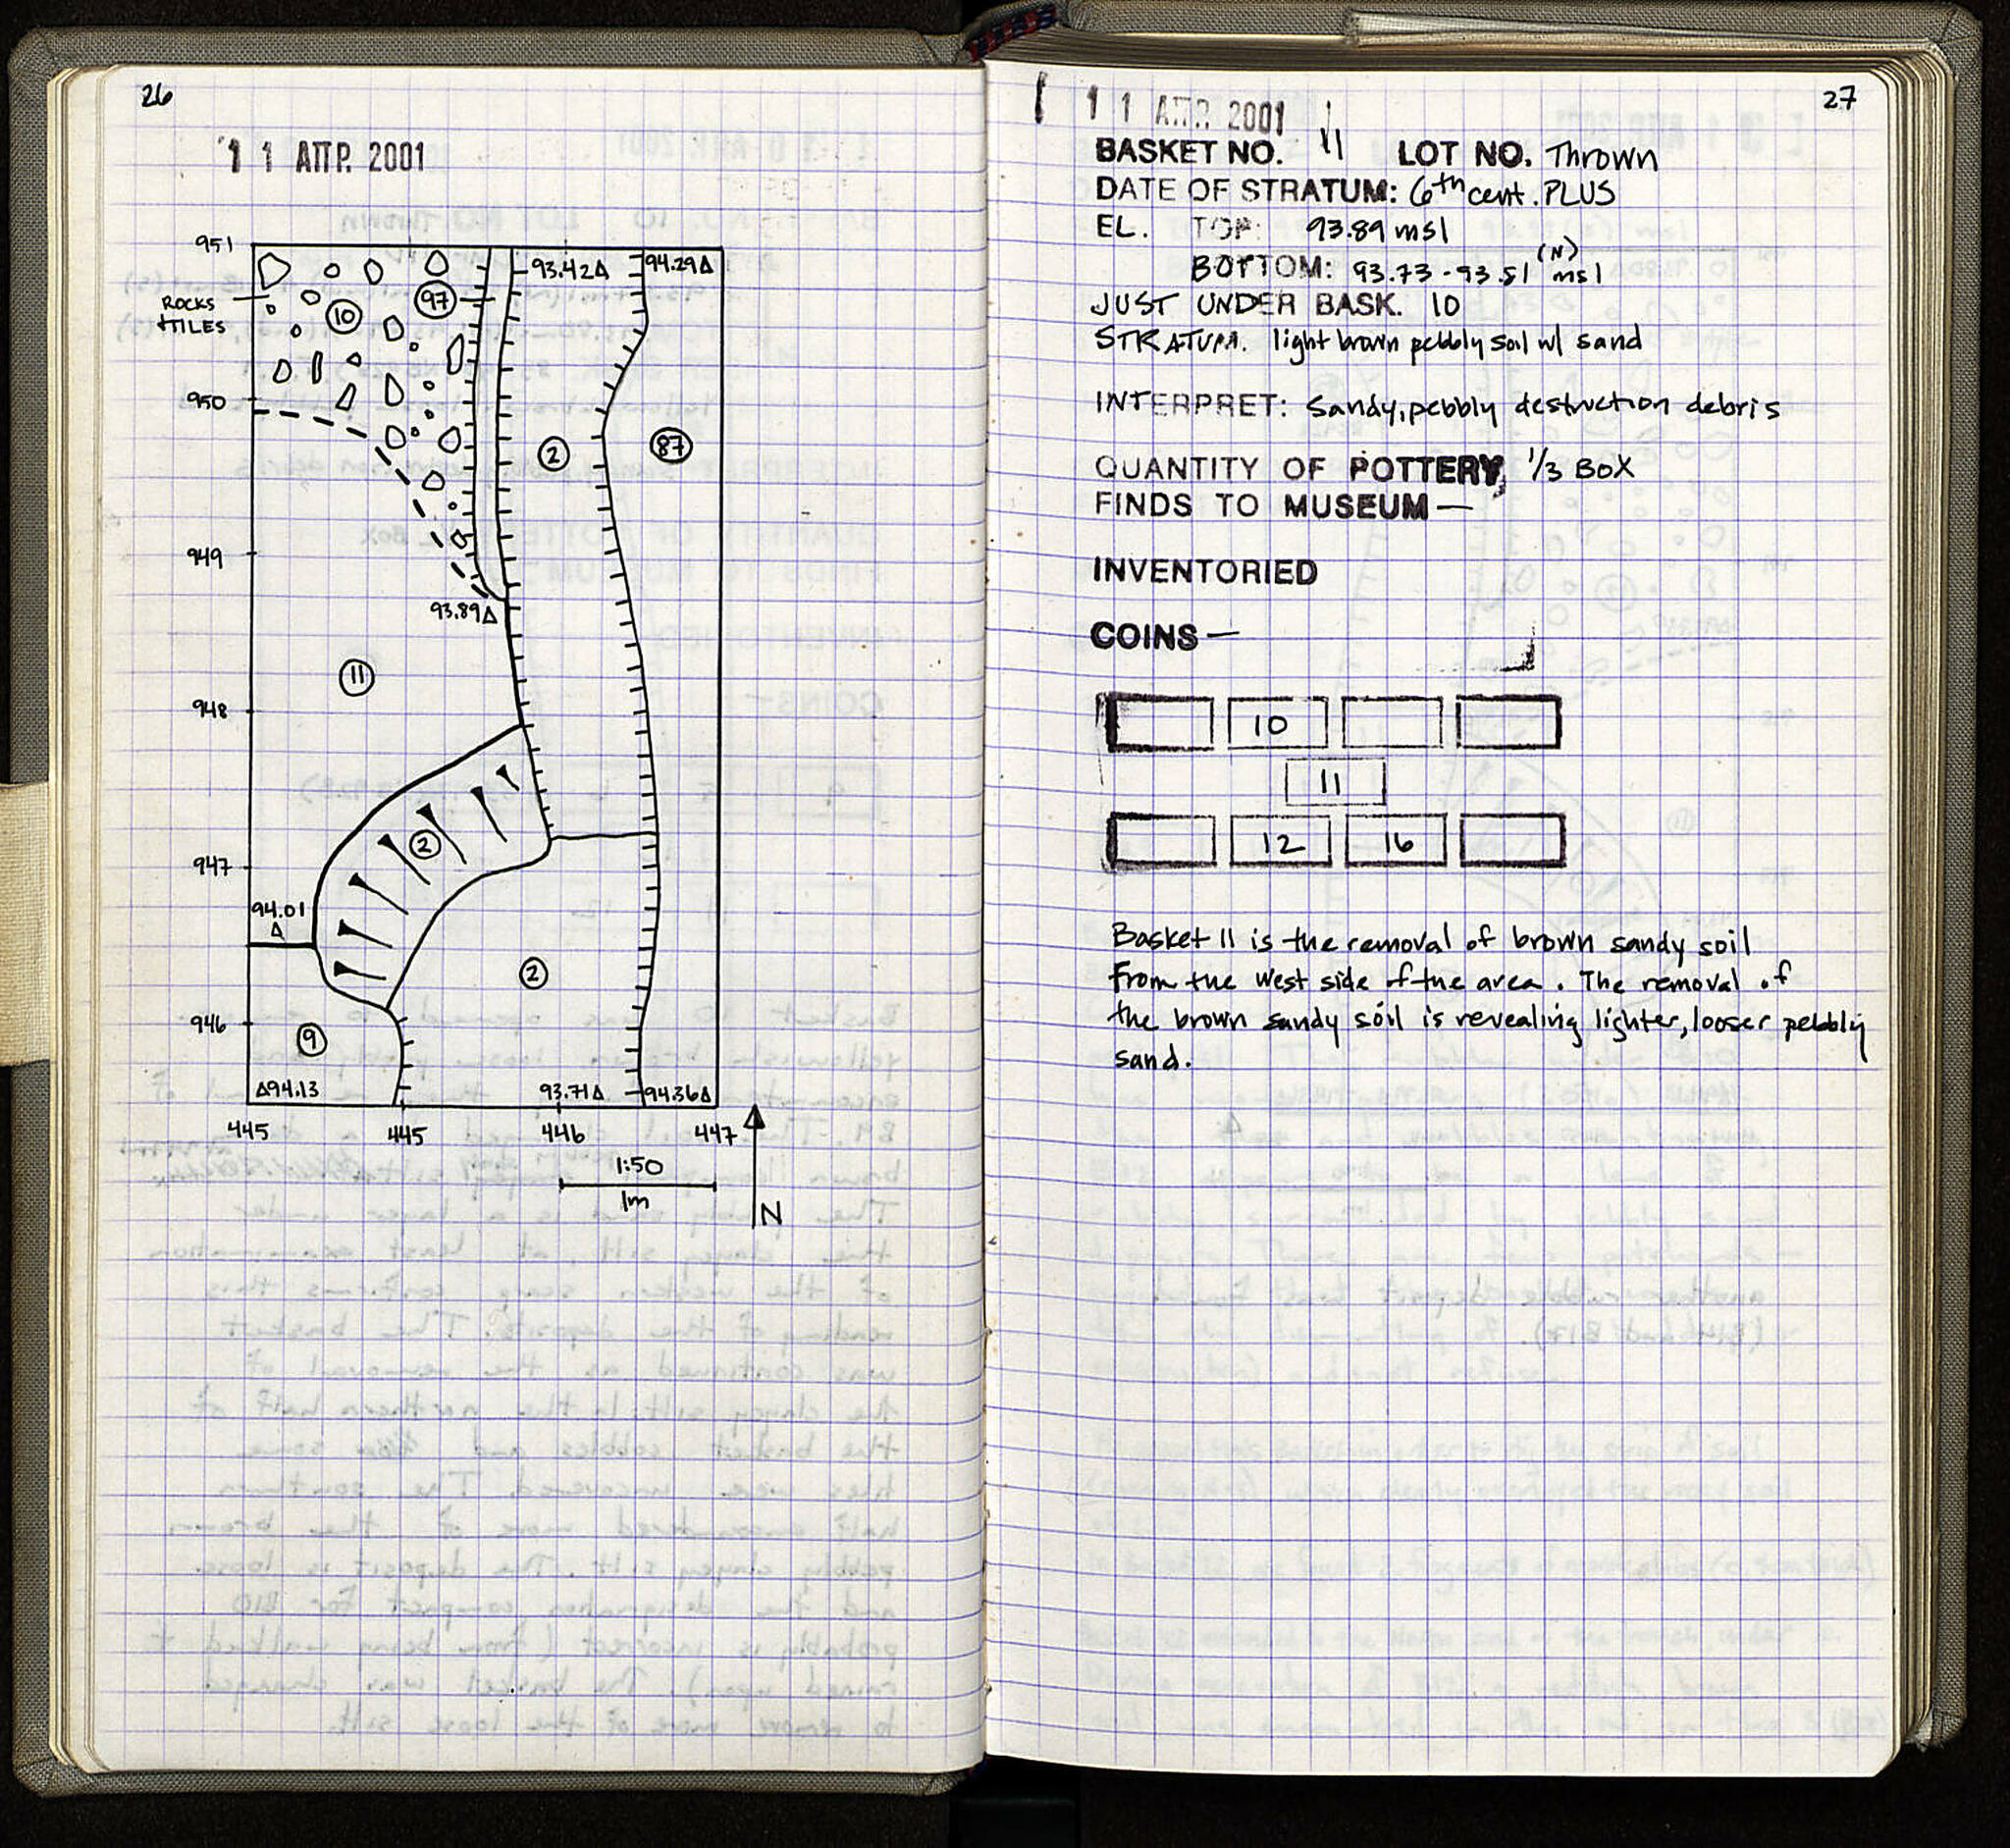 26
11 ΑΠΡ. 2001
951
93.42Δ
94.29Δ
ROCKS
+TILES
10
97
950
2
87
949
93.89Δ
11
948
2
947
94.01
Δ
2
946
9
Δ94.13
93.71Δ
94.36Δ
445
445
446
447
1:50
1m
N
27
11 ΑΠΡ. 2001
11
BASKET NO. 11 LOT NO. Thrown
DATE OF STRATUM: 6th cent. PLUS
EL. TOP: 93.89 msl
(N)
BOTTOM: 93.73 - 93.51 msl
JUST UNDER BASK. 10
STRATUM. light brown pebbly soil w/ sand
INTERPRET: Sandy, pebbly destruction debris
QUANTITY OF POTTERY 1/3 BOX
FINDS TO MUSEUM —
INVENTORIED
COINS —
10
11
12 16
Basket 11 is the removal of brown sandy soil
from the west side of the area. The removal of
the brown sandy soil is revealing lighter, looser pebbly
sand.